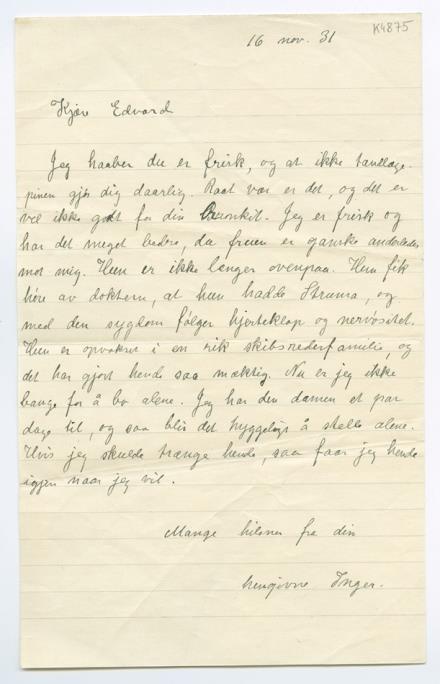 K4875
16 nov. 31
Kjære Edvard
Jeg haaber du er frisk, og at ikke tandlæge-
pinen gjør dig daarlig. Raat vær er det, og det er
vel ikke godt for din Bronkit. Jeg er frisk og
har det meget bedre, da fruen er ganske anderledes
mot mig. Hun er ikke længer ovenpaa. Hun fik
høre av doktern, at hun hadde Struma, og
med den sygdom følger hjerteklap og nervøsitet.
Hun er opvokset i en rik skibsrederfamilie, og
det har gjort hende saa mæktig. Nu er jeg ikke
bange for å bo alene. Jeg har den damen et par
dage til, og saa blir det hyggeligt å stelle alene.
Hvis jeg skulde trænge hende, saa faar jeg hende
igjen naar jeg vil.
Mange hilsner fra din
hengivne Inger.